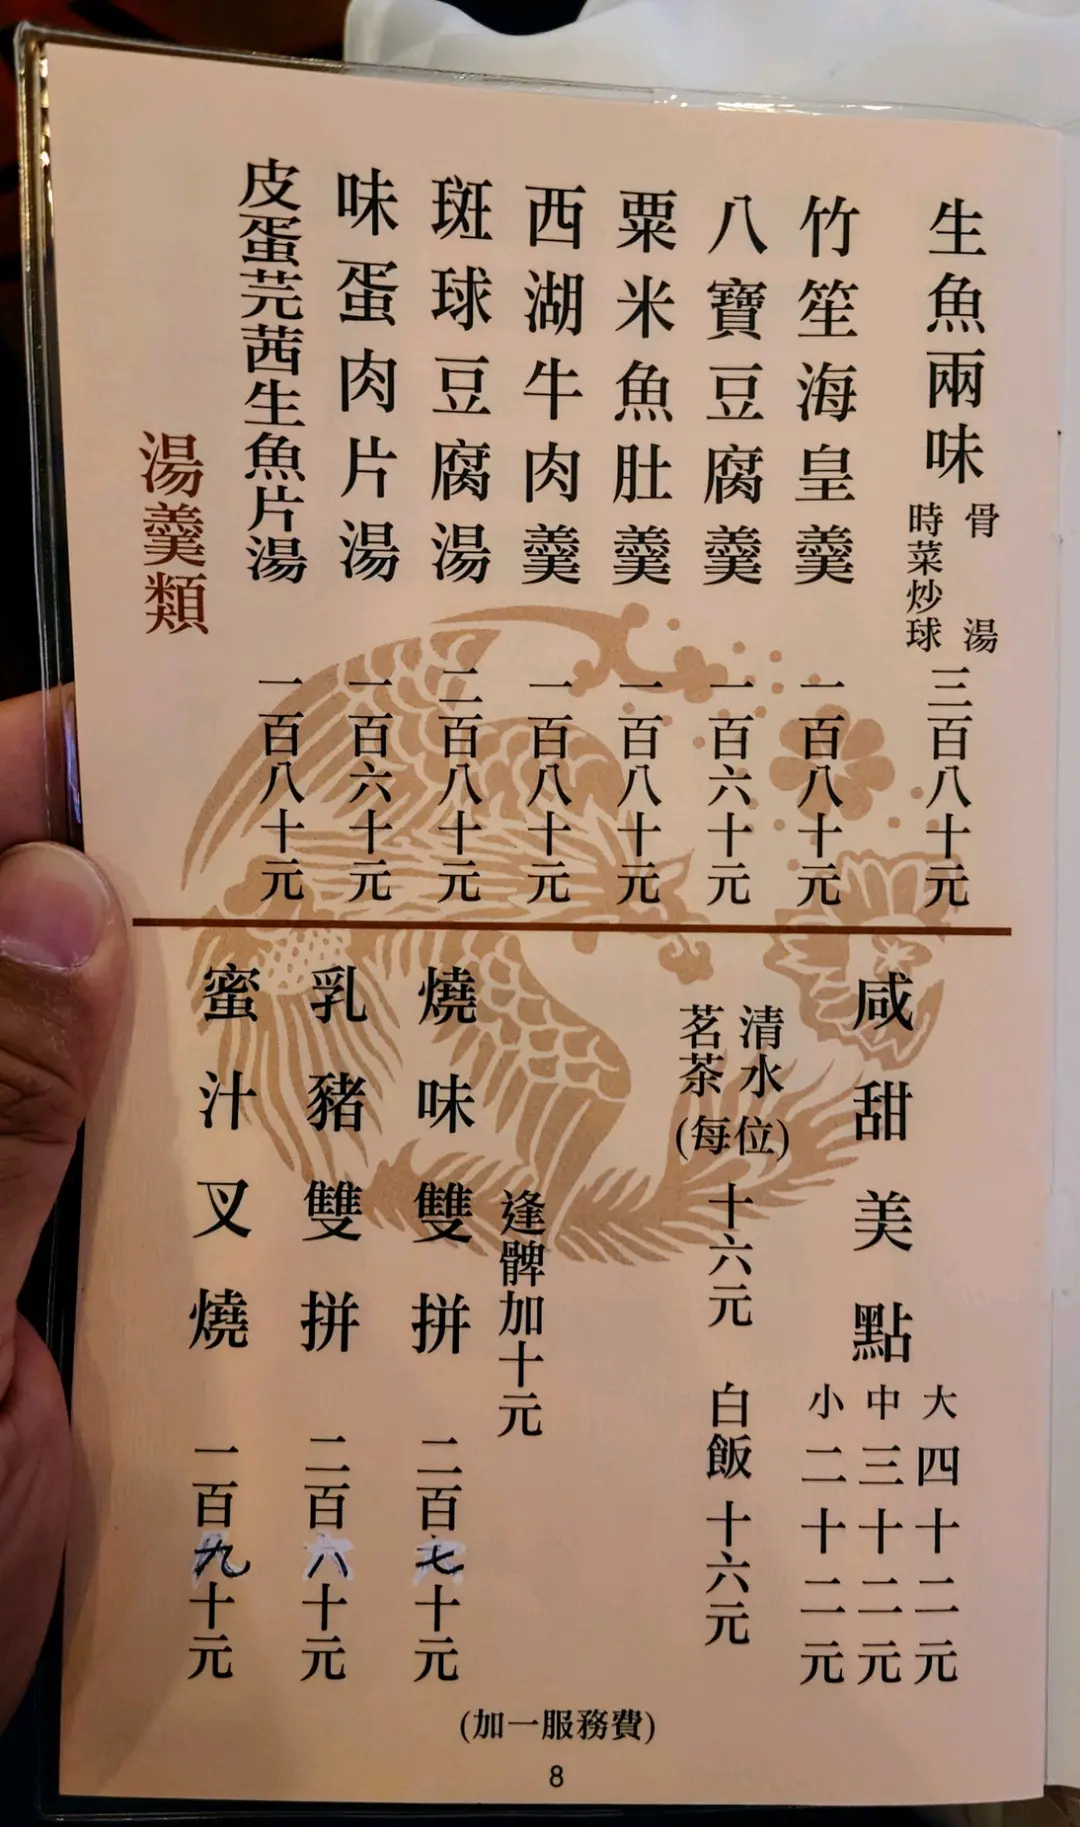 湯羹類
皮蛋芫茜生魚片湯 一百八十元
味蛋肉片湯 一百六十元
斑球豆腐湯 二百八十元
西湖牛肉羹 一百八十元
粟米魚肚羹 一百八十元
八寶豆腐羹 一百六十元
竹笙海皇羹 一百八十元
生魚兩味
骨湯
時菜炒球
三百八十元
蜜汁叉燒 一百九十元
乳豬雙拼 二百六十元
燒味雙拼 二百七十元
逢髀加十元
清水
茗茶
(每位)
十六元
白飯 十六元
咸甜美點
大 四十二元
中 三十二元
小 二十二元
(加一服務費)
8